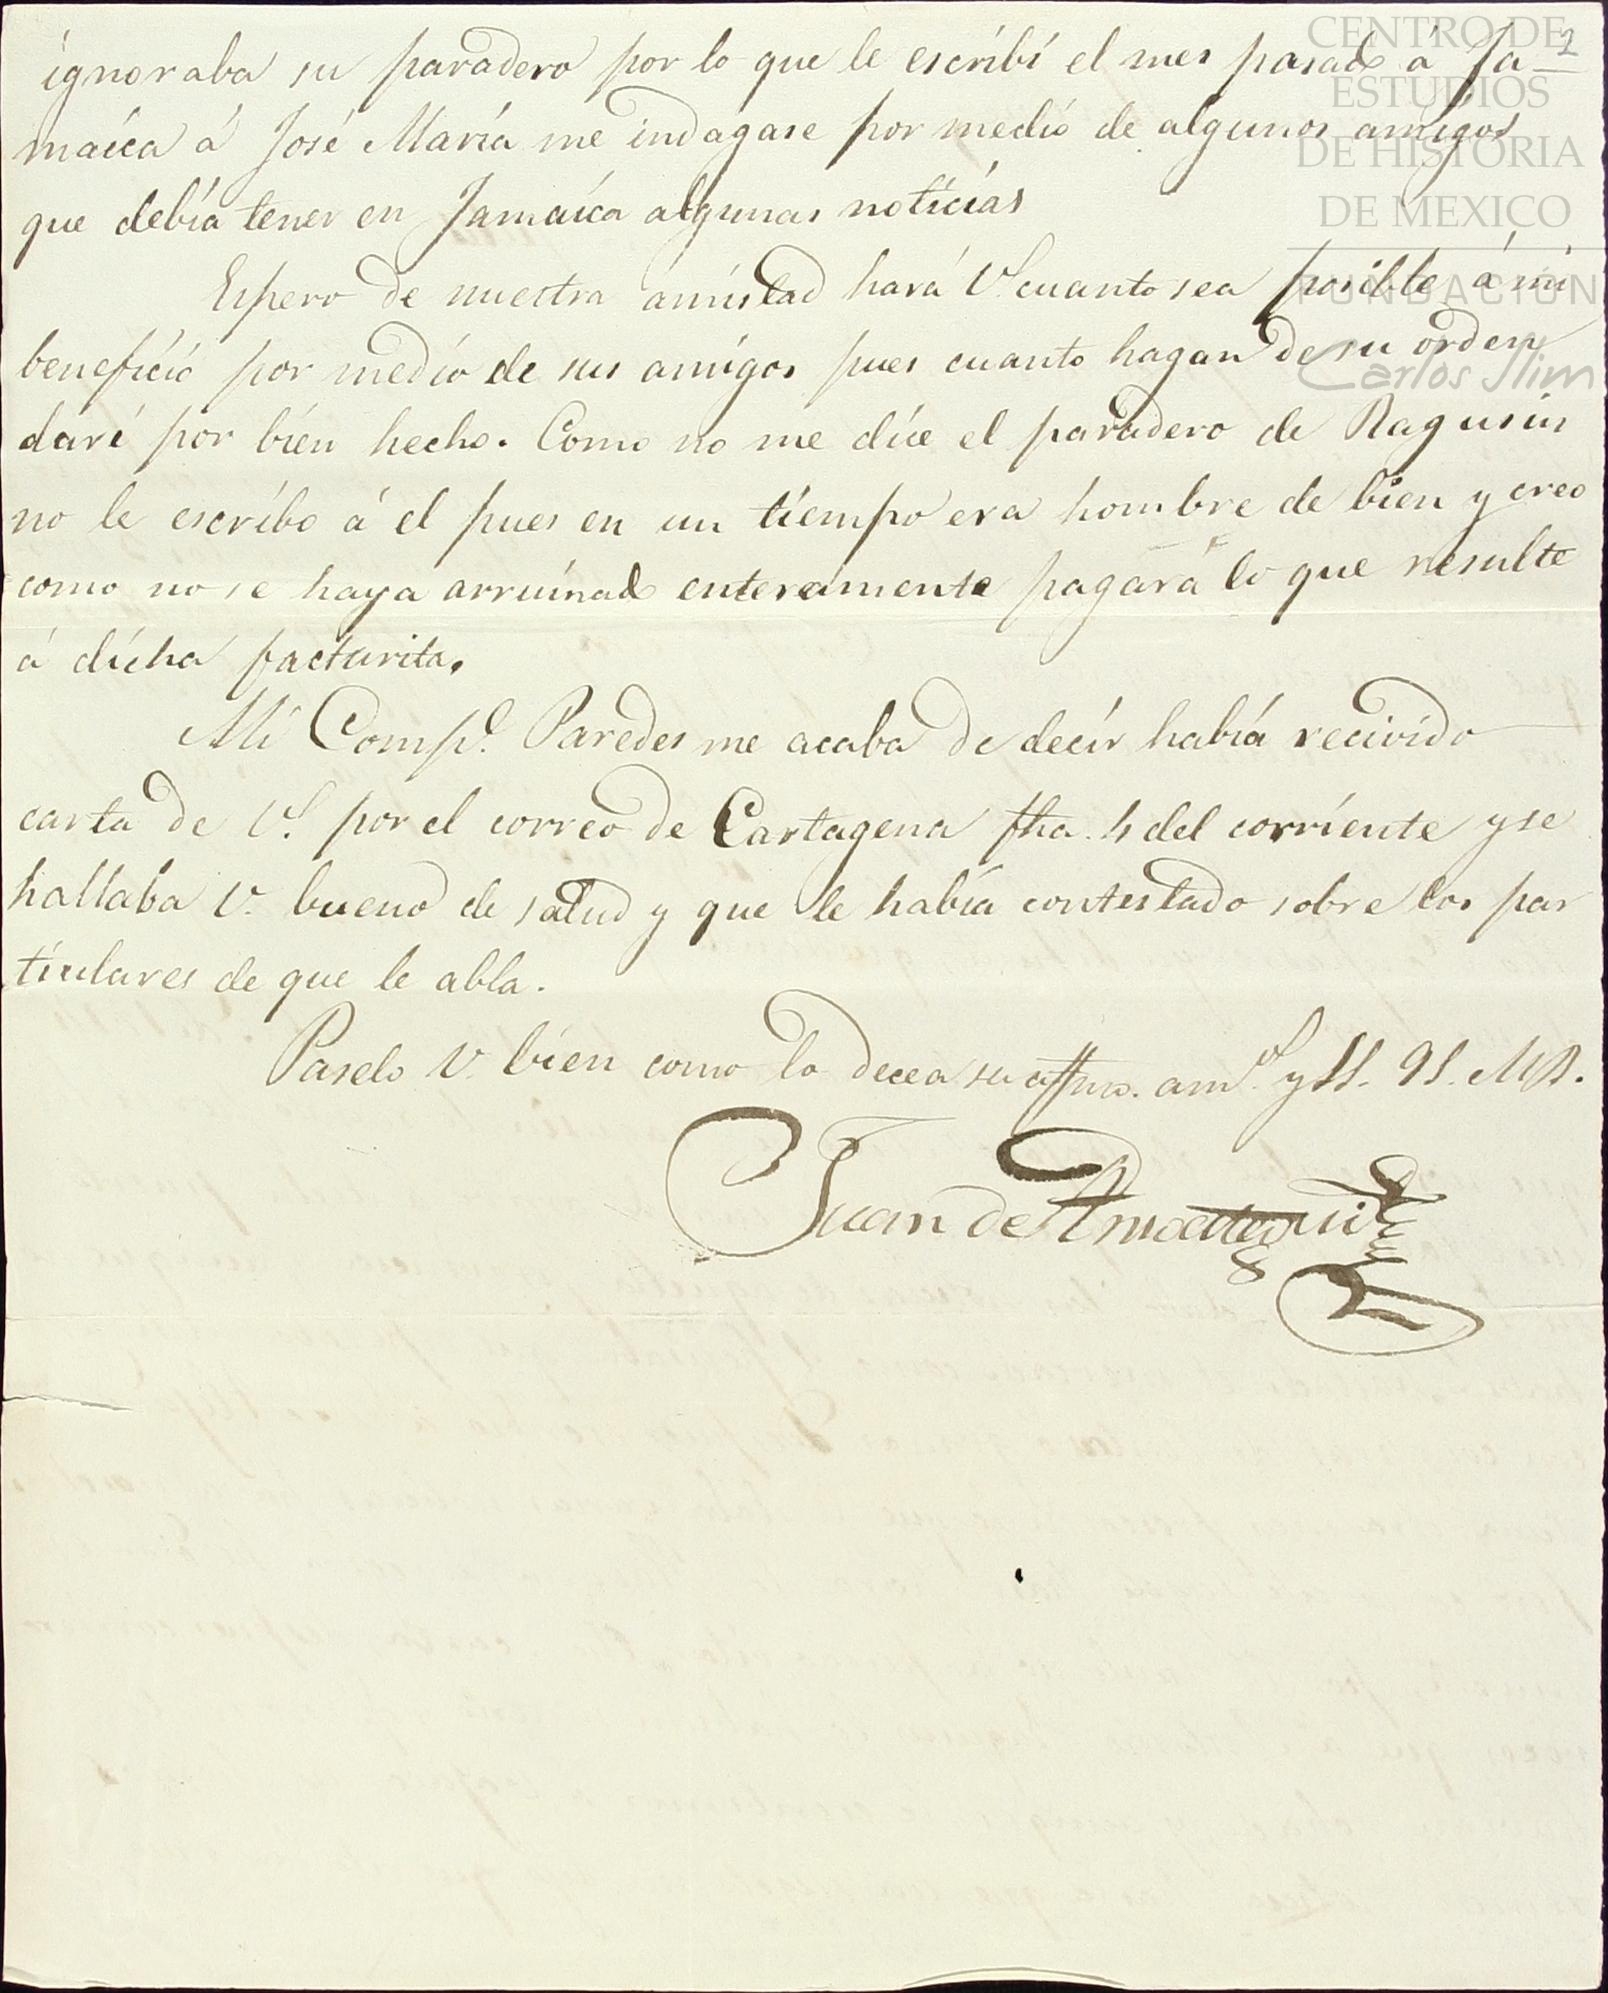 2
ignoraba su paradero por lo que le escribí el mes pasado á Ja-
maica á José María me indagase por medio de algunos amigos
que debía tener en Jamaica algunas noticias
Espero de nuestra amistad hará V. cuanto sea posible á mi
beneficio por medio de sus amigos pues cuanto hagan de su orden
daré por bien hecho. Como no me dice el paradero de Ragusin
no le escribo á el pues en un tiempo era hombre de bien y creo
como no se haya arruinado enteramente pagará lo que resulte
á dicha facturita.
Mi Compe. Paredes me acaba de decir había recivido
carta de V. por el correo de Cartagena fha. del corriente y se
hallaba V. bueno de salud y que le había contestado sobre los par
ticulares de que le abla.
Paselo V. bien como lo decea su affmo. amo. y SS. QS. MB.
Juan de Amategui
CENTRO DE
ESTUDIOS
DE HISTORIA
DE MEXICO
FUNDACIÓN
Carlos Slim